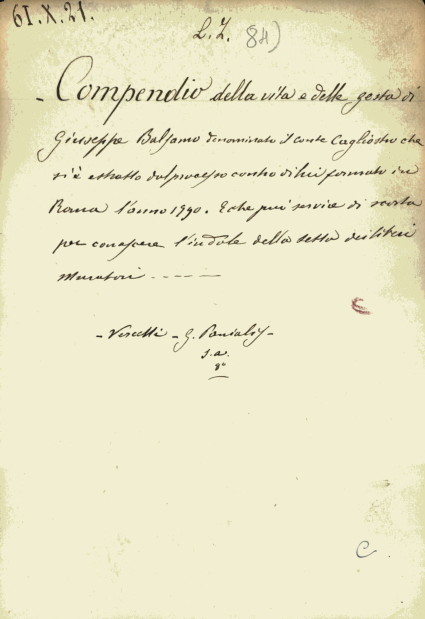 61.X.21.
L.Z. 84)
- Compendio della vita e delle gesta di
Giuseppe Balsamo denominato il conte Cagliostro che
si è estratto dal processo contro di lui formato in
Roma l'anno 1790. E che può servire di scorta
per conoscere l'indole della setta dei liberi
Muratori - - - - -
- Vercelli - G. Panialis -
s.a.
8°
C